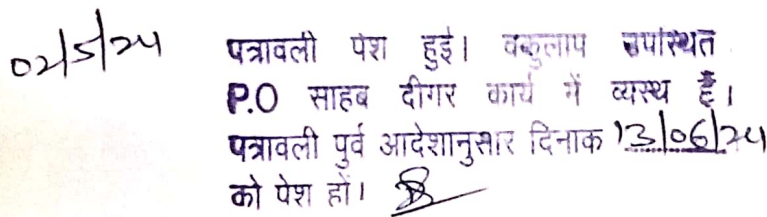 02/5/24
पत्रावली पेश हुई। वकुलाप उपस्थित
P.O साहब दीगर कार्य में व्यस्थ है।
पत्रावली पुर्व आदेशानुसार दिनाक 13/06/24
को पेश हों।